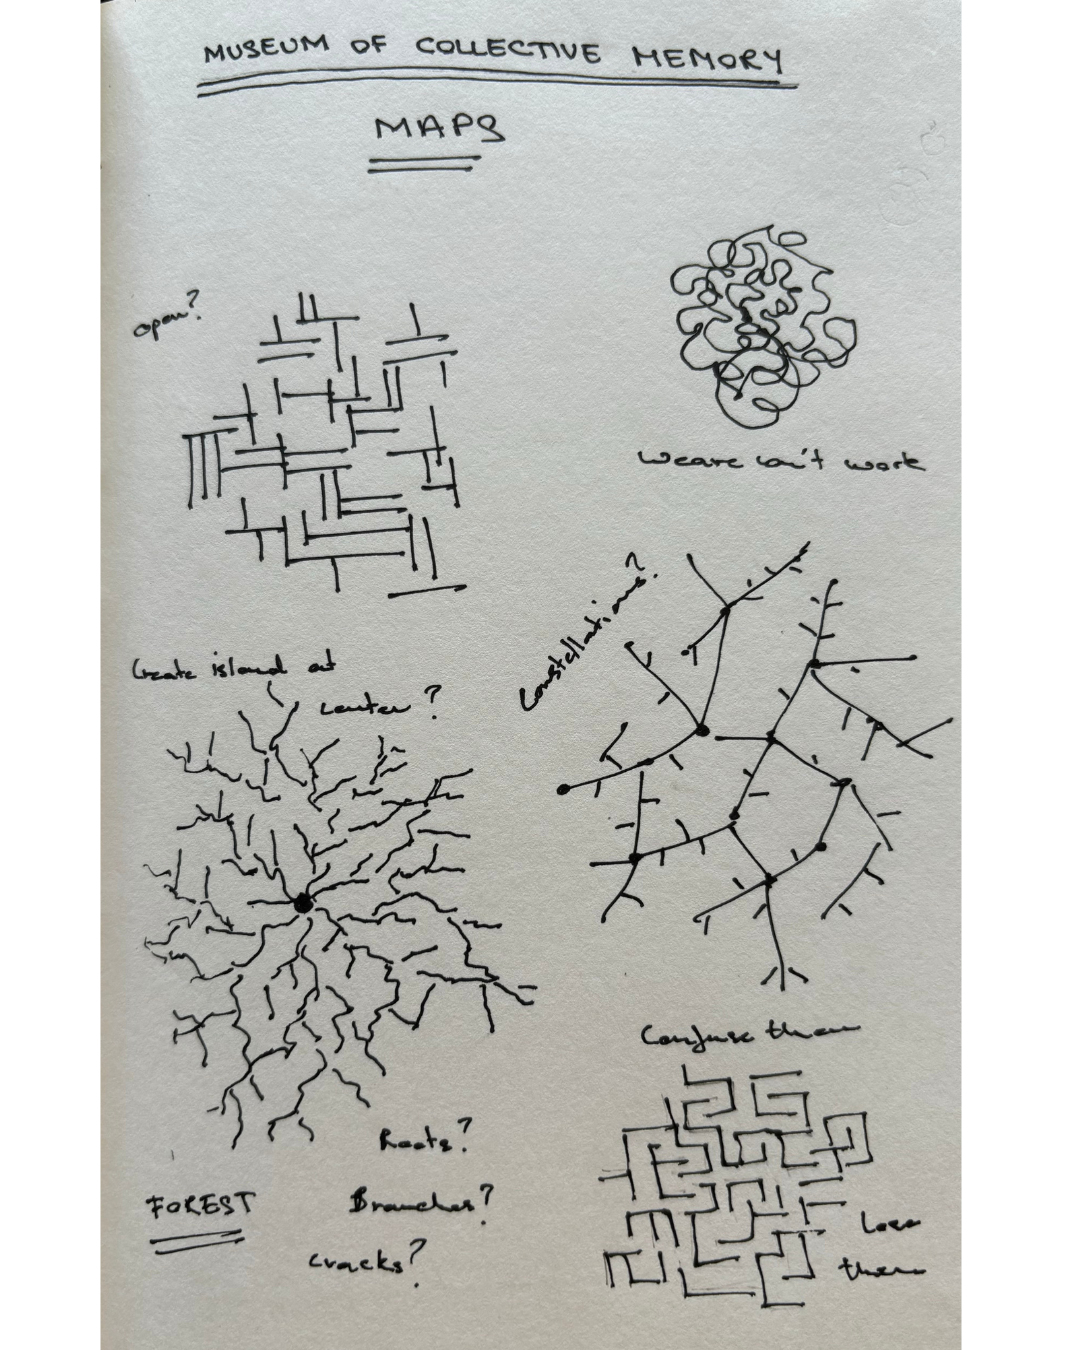 MUSEUM OF COLLECTIVE MEMORY
MAPS
open?
weave won't work
Constellations?
Create island at
center?
Confuse them
Roots?
FOREST
Branches?
cracks?
Lose
them